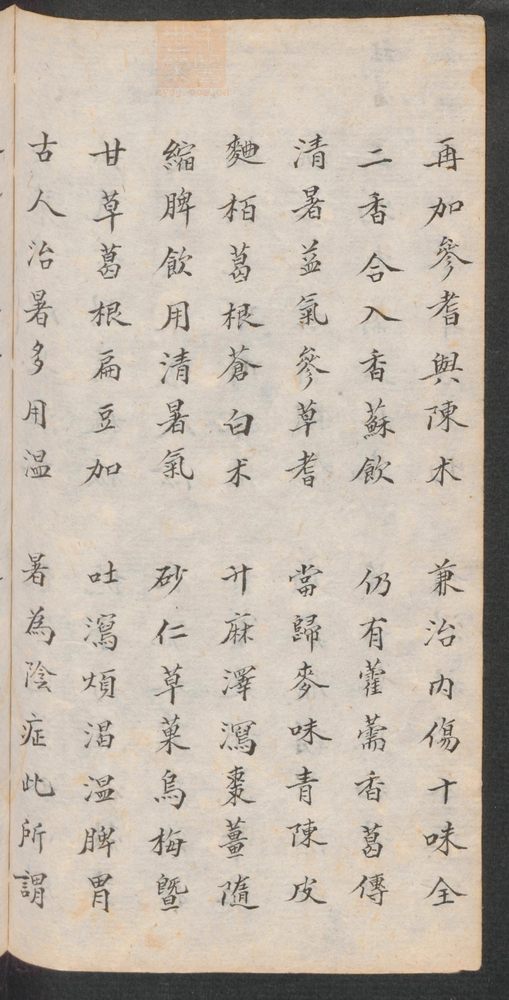 再加參耆與陳术　兼治內傷十味全
二香合入香蘇飲　仍有藿薷香葛傳
清暑益氣參草耆　當歸麥味青陳皮
麯栢葛根蒼白术　升麻澤瀉棗薑隨
縮脾飲用清暑氣　砂仁草菓烏梅曁
甘草葛根扁豆加　吐瀉煩渴温脾胃
古人治暑多用温　暑為陰症此所謂